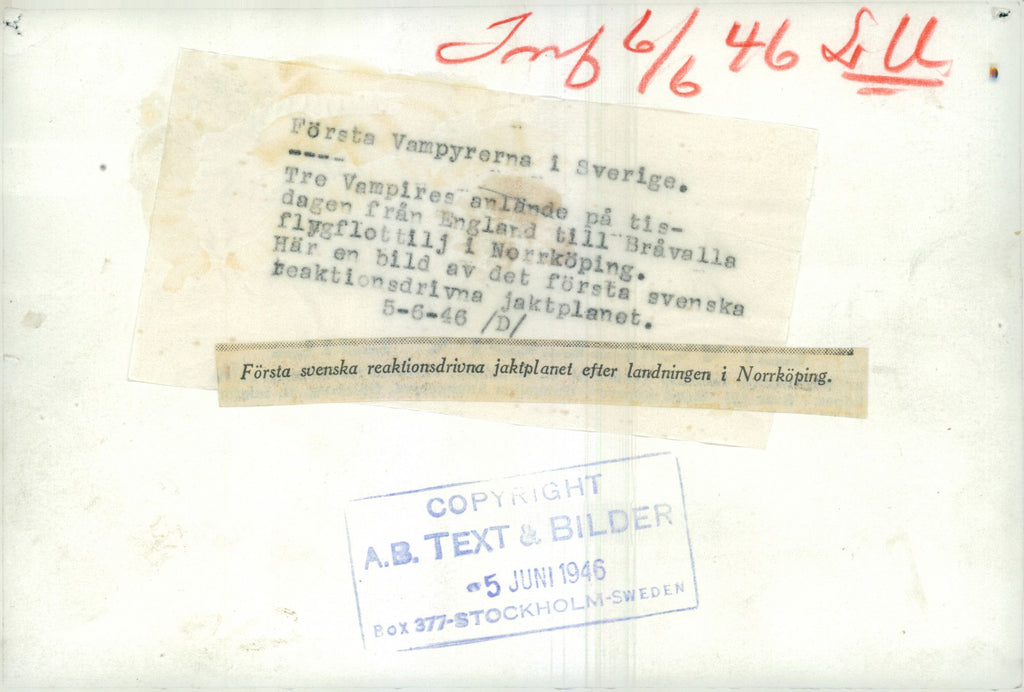 6/6 46
Första Vampyrerna i Sverige.
----
Tre Vampires anlände på tis-
dagen från England till Bråvalla
flygflottilj i Norrköping.
Här en bild av det första svenska
reaktionsdrivna jaktplanet.
5-6-46 /D/
Första svenska reaktionsdrivna jaktplanet efter landningen i Norrköping.
COPYRIGHT
A.B. TEXT & BILDER
-5 JUNI 1946
BOX 377-STOCKHOLM-SWEDEN